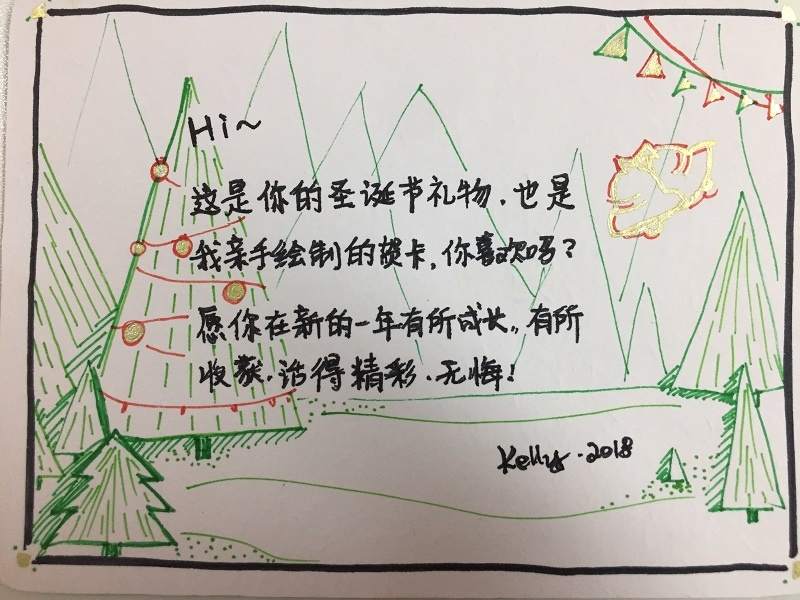 Hi~
这是你的圣诞节礼物,也是
我亲手绘制的贺卡,你喜欢吗?
愿你在新的一年有所成长,有所
收获,活得精彩,无悔!
Kelly·2018